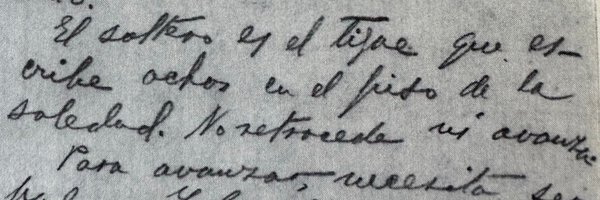 El soltero es el tigre que es-
cribe ochos en el piso de la
soledad. No retrocede ni avanza.
Para avanzar, necesita ser